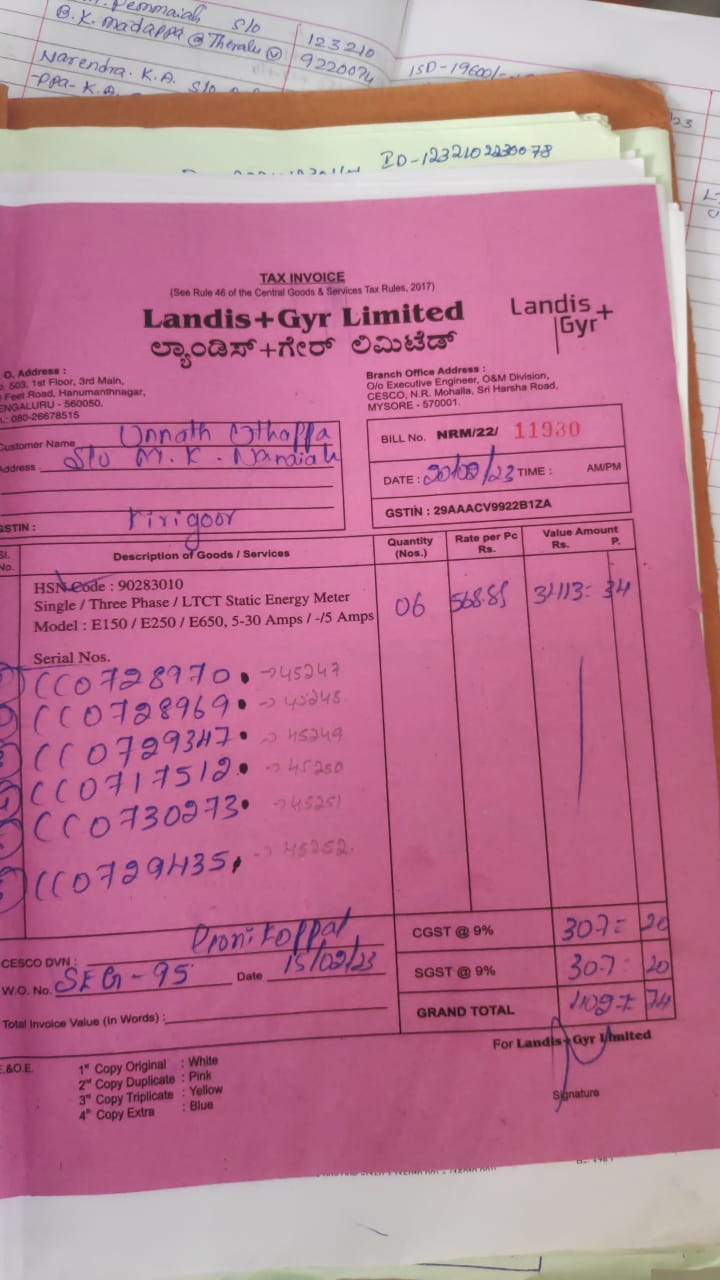 Pemmaiah S/o
B.K. Madappa @ Theralu
123210
9220074
ISD-19600/-
Narendra. K.A. S/o
-ppa- K.A.
ID-1232102230078
TAX INVOICE
(See Rule 46 of the Central Goods & Services Tax Rules, 2017)
Landis+Gyr Limited
ಲ್ಯಾಂಡಿಸ್+ಗೇರ್ ಲಿಮಿಟೆಡ್
Landis+
Gyr
O. Address :
503, 1st Floor, 3rd Main,
Feet Road, Hanumanthnagar,
ENGALURU - 560050.
080-26678515
Branch Office Address :
O/o Executive Engineer, O&M Division,
CESCO, N.R. Mohalla, Sri Harsha Road,
MYSORE - 570001.
Customer Name Unnath Uthappa
Address S/o M. K. Nanaiah
GSTIN : Tirigoor
BILL No. NRM/22/ 11930
DATE : 20/02/23 TIME : AM/PM
GSTIN : 29AAACV9922B1ZA
Sl. No. Description of Goods / Services Quantity (Nos.) Rate per Pc Rs. Value Amount Rs. P.
HSN Code : 90283010
Single / Three Phase / LTCT Static Energy Meter
Model : E150 / E250 / E650, 5-30 Amps / -/5 Amps
06 568.89 3413= 34
Serial Nos.
CC0728970. →45247
CC0728969. →45248
CC0729347. →45249
CC0717512. →45250
CC0730273. →45251
CC0729435. →45252
CESCO DVN : Ponnikoppal
W.O. No. SEG-95 Date 15/02/23
Total Invoice Value (In Words) :
CGST @ 9% 307= 20
SGST @ 9% 307= 20
GRAND TOTAL 4027= 74
For Landis+Gyr Limited
Signature
E.&O.E.
1st Copy Original : White
2nd Copy Duplicate : Pink
3rd Copy Triplicate : Yellow
4th Copy Extra : Blue